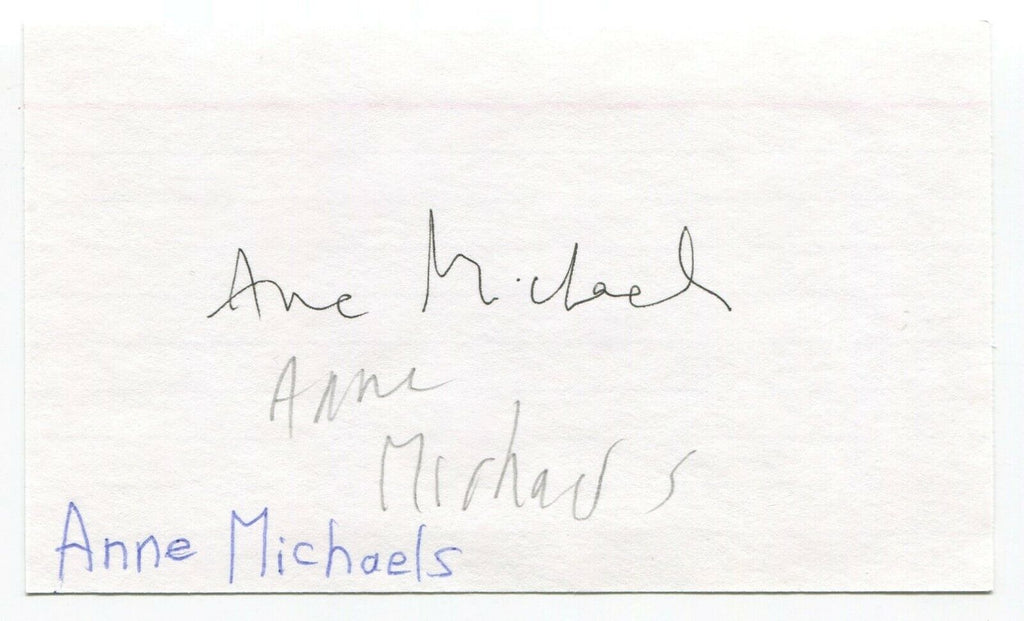 Anne Michaels
Anne
Michaels
Anne Michaels